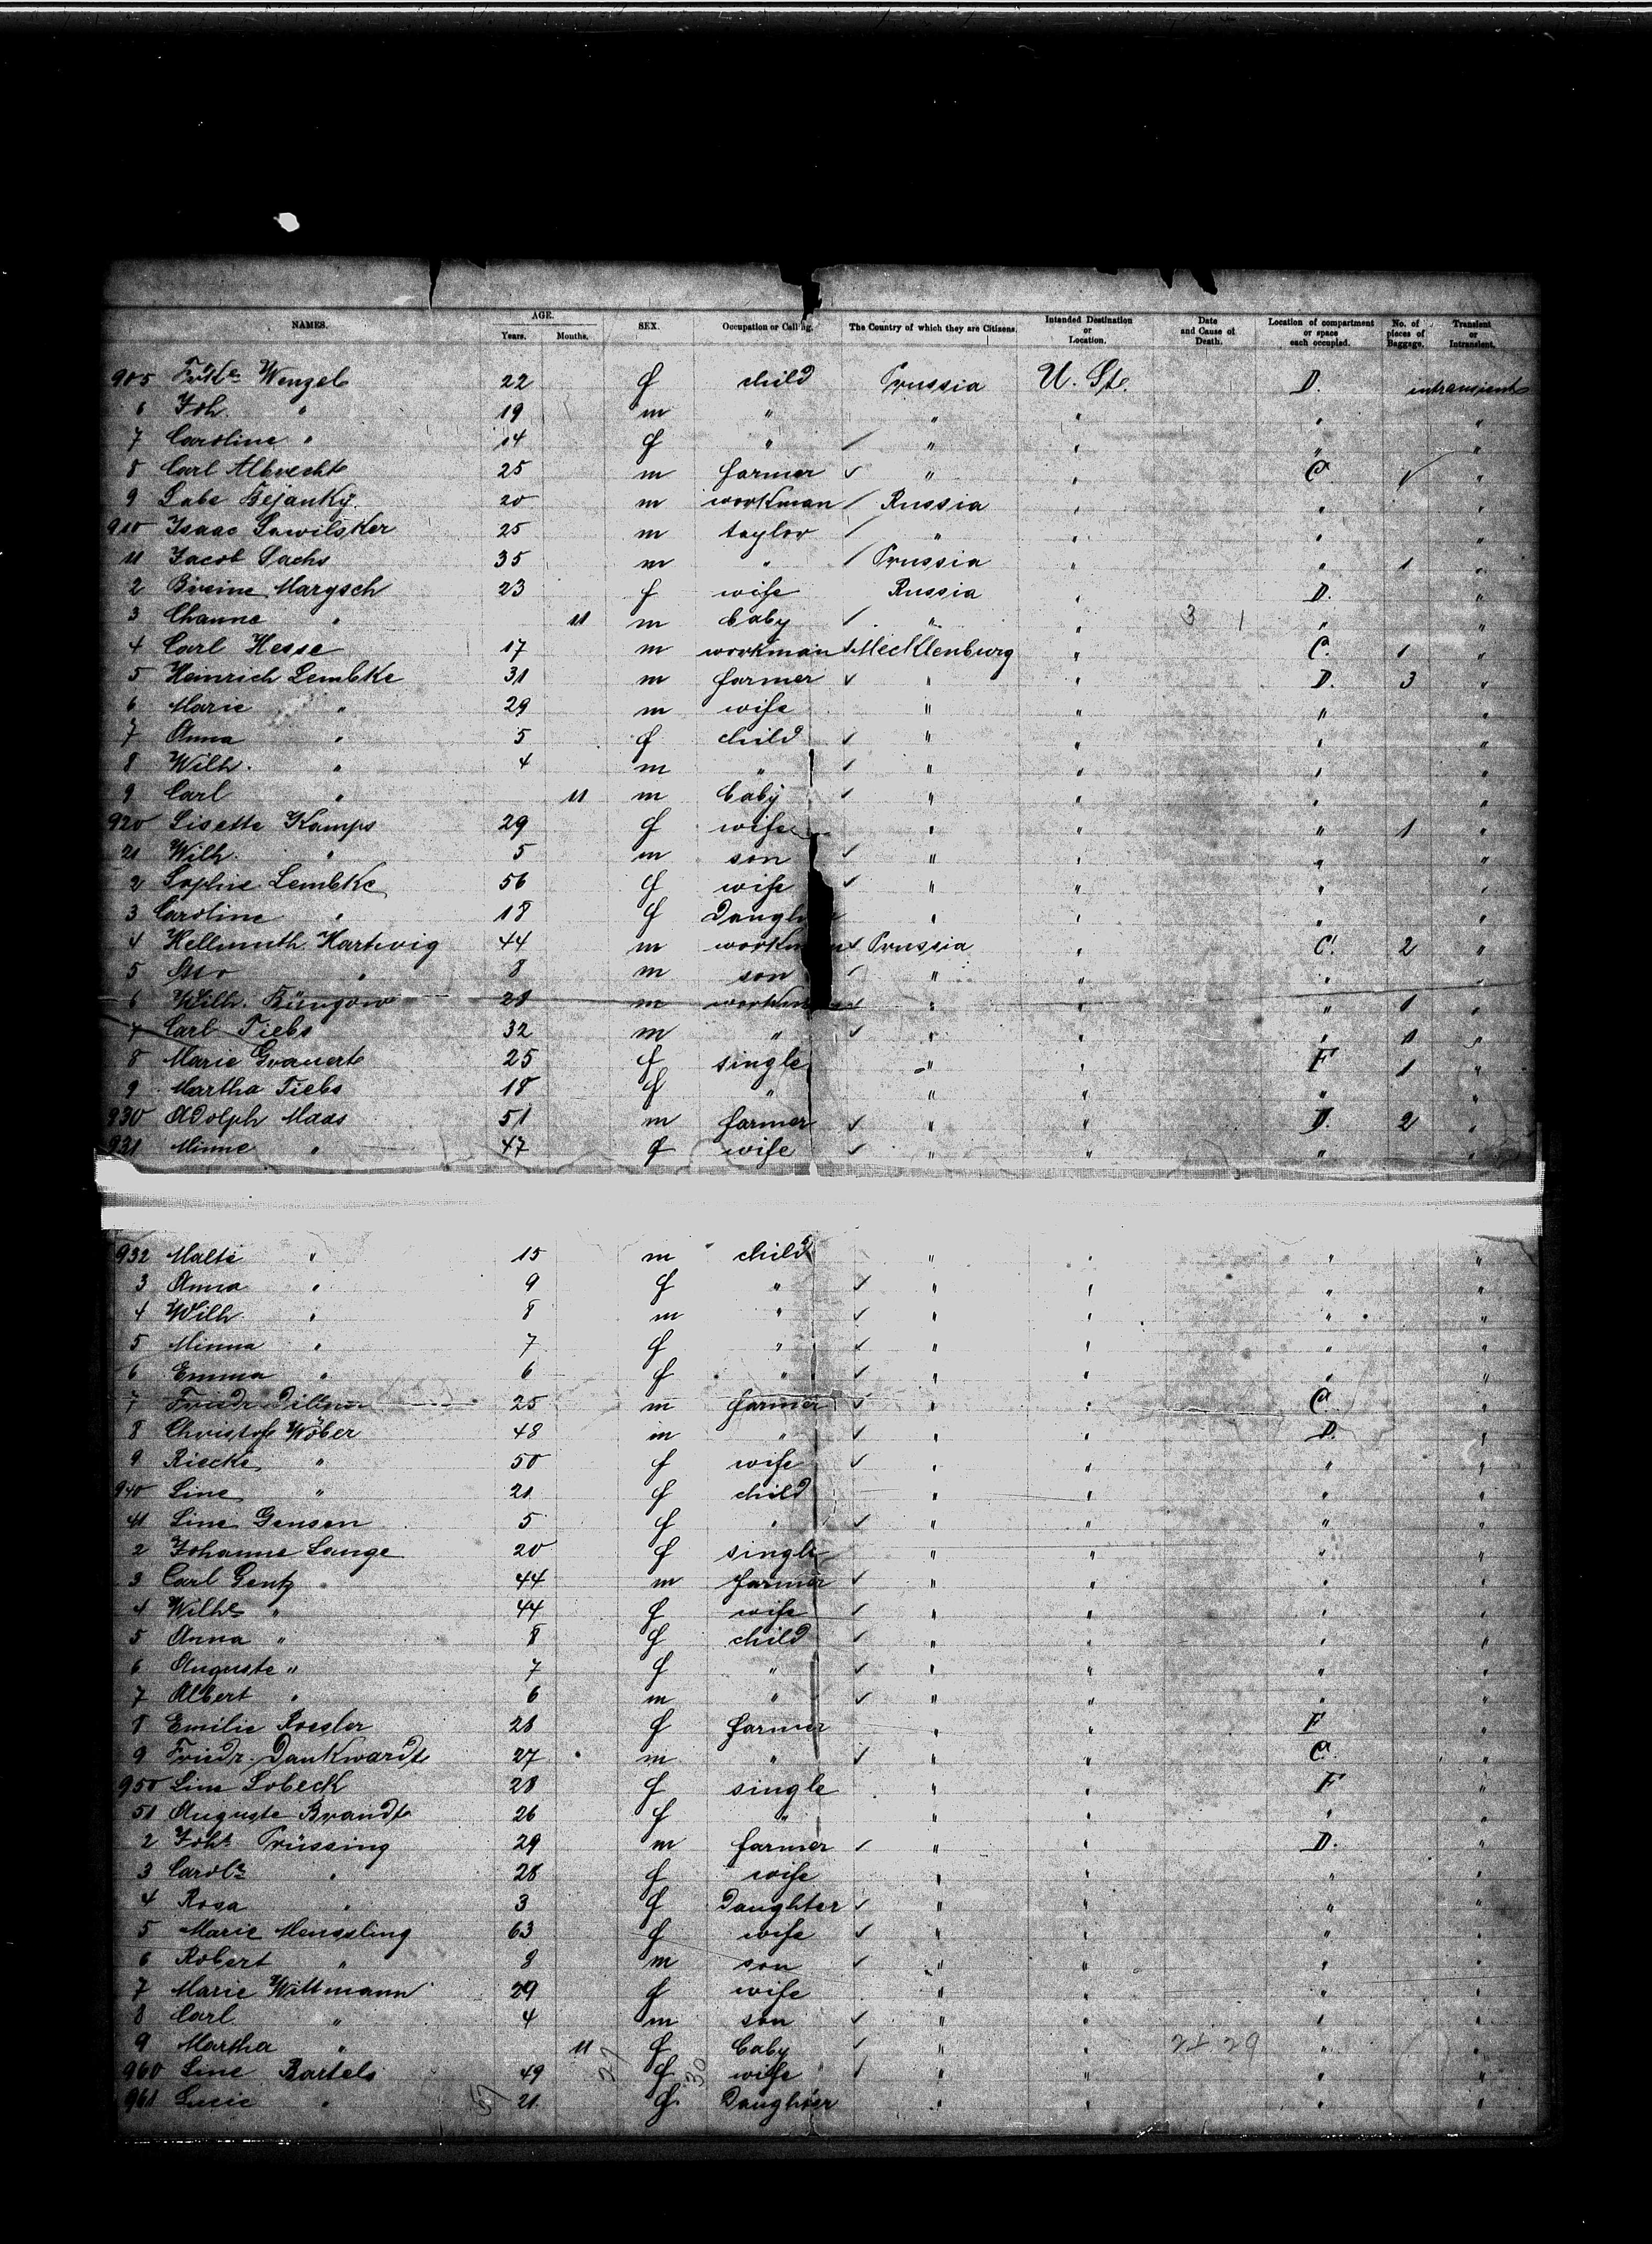 NAMES. AGE. Years. Months. SEX. Occupation or Calling. The Country of which they are Citizens. Intended Destination or Location. Date and Cause of Death. Location of compartment or space each occupied. No. of pieces of Baggage. Transient or Intransient.
905 Wenzel 22 f child Prussia U. St. D. intransient
6 Joh. " 19 m " " " " "
7 Caroline " 14 f " / " " " "
8 Carl Albrecht 25 m farmer ✓ " " C. "
9 Labe Bejanky 20 m workman / Russia " " "
910 Isaac Sawilsker 25 m taylor / " " " "
11 Jacob Sachs 35 m " / Prussia " " 1 "
2 Breine Marysch 23 f wife Russia " D. "
3 Channe " 11 m baby / " " 3 1 " "
4 Carl Hesse 17 m workman Mecklenburg " C. 1 "
5 Heinrich Lembke 31 m farmer ✓ " " D. 3 "
6 Marie " 29 m wife " " " "
7 Anna " 5 f child ✓ " " " "
8 Wilh. " 4 m " ✓ " " " "
9 Carl " 11 m baby ✓ " " " "
920 Lisette Kamps 29 f wife " " " 1 "
21 Wilh. " 5 m son ✓ " " " "
2 Sophie Lembke 56 f wife ✓ " " " "
3 Caroline " 18 f Daugh " " " "
4 Hellmuth Hartwig 44 m workm ✓ Prussia " C. 2 "
5 Otto " 8 m son ✓ " " " "
6 Wilh. Büngow 28 m workm ✓ " " " 1 "
7 Carl Tiebs 32 m " ✓ " " " 1 "
8 Marie Grauert 25 f single " " F 1 "
9 Martha Tiebs 18 f " " " " "
930 Adolph Maas 51 m farmer ✓ " " D. 2 "
931 Minne " 47 f wife ✓ " " " "
932 Malte " 15 m child " " " "
3 Anna " 9 f " ✓ " " " "
4 Wilh " 8 m " ✓ " " " "
5 Minna " 7 f " ✓ " " " "
6 Emma " 6 f " ✓ " " " "
7 Friedr. 25 m farmer ✓ " " C. "
8 Christof Wöber 48 m " ✓ " " D. "
9 Riecke " 50 f wife ✓ " " " "
940 Line " 21 f child " " " "
41 Line Gensen 5 f " ✓ " " " "
2 Johanne Lange 20 f single " " " "
3 Carl Gentz 44 m farmer ✓ " " " "
4 Wilhe " 44 f wife ✓ " " " "
5 Anna " 8 f child ✓ " " " "
6 Auguste " 7 f " ✓ " " " "
7 Albert " 6 m " ✓ " " " "
8 Emilie Roesler 28 f farmer " " F "
9 Friedr. Dankwardt 27 m " ✓ " " C. "
950 Line Lobeck 28 f single " " F "
51 Auguste Brandt 26 f " " " " "
2 Johs. Prüssing 29 m farmer ✓ " " D. "
3 Carole " 28 f wife " " " "
4 Rosa " 3 f Daughter ✓ " " " "
5 Marie Mensling 63 f wife ✓ " " " "
6 Robert " 8 m son ✓ " " " "
7 Marie Wittmann 29 f wife " " " "
8 Carl " 4 m son ✓ " " " "
9 Martha " 11 f baby ✓ " " " "
960 Line Bartels 49 f wife / " " " "
961 Lucie " 21 f Daughter " " " "